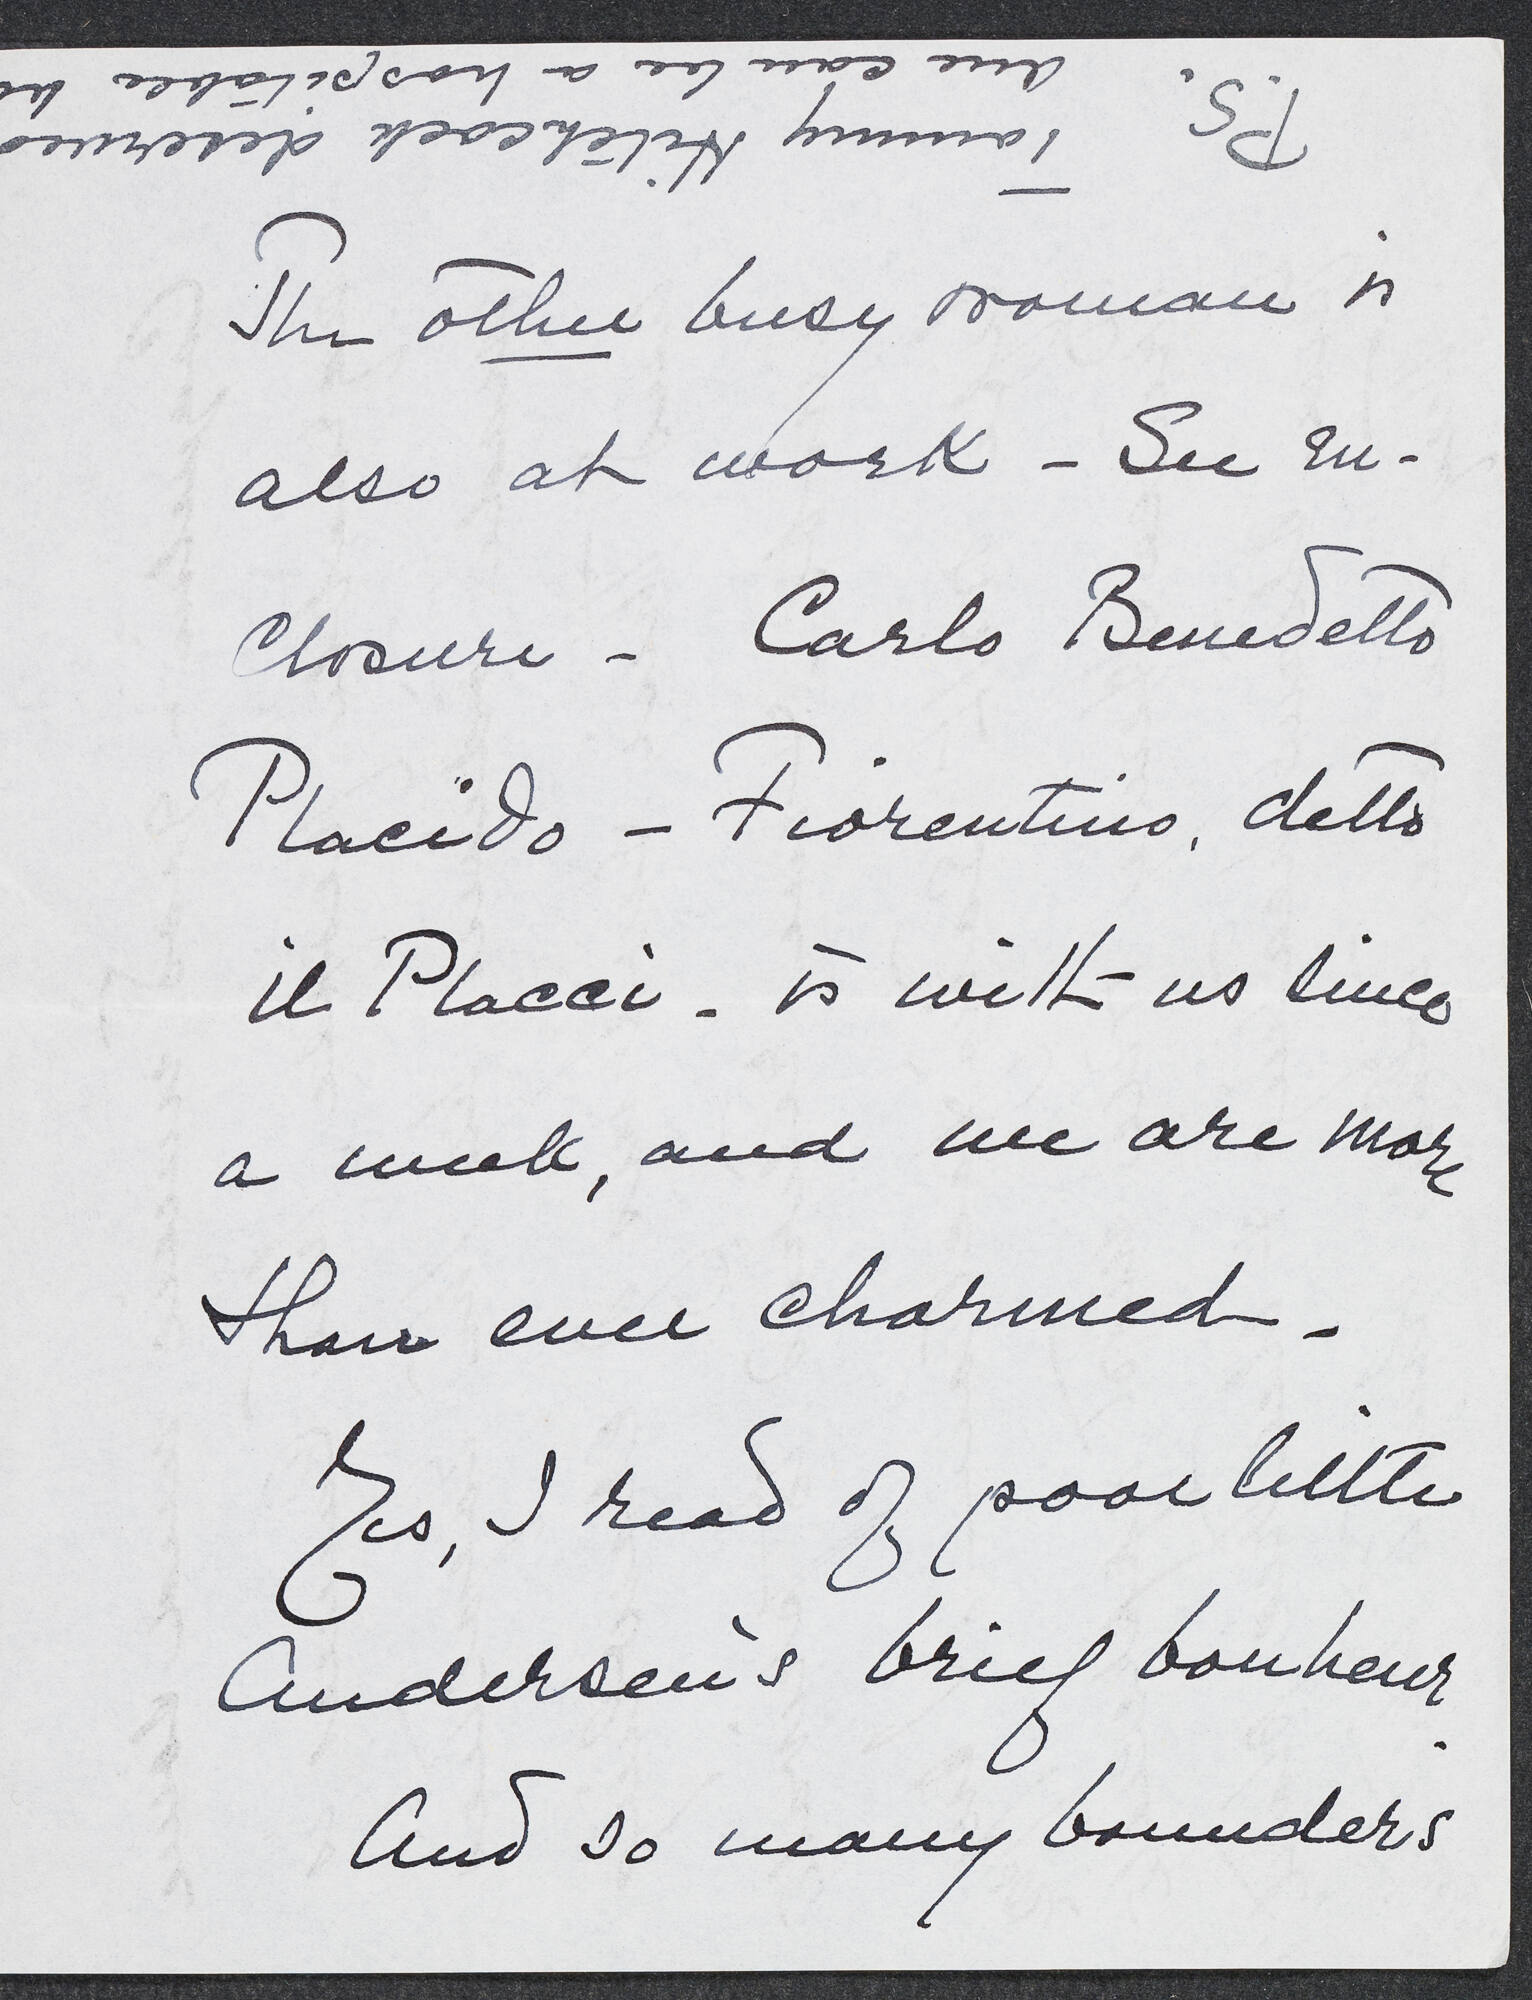 P.S. Tommy Hitchcock deserves
and can be a hospitable
The other busy woman is
also at work - See en-
closure - Carlo Benedetto
Placido - Fiorentino, detto
il Placci - is with us since
a week, and we are more
than ever charmed -
Yes, I read of poor little
Andersen's brief bonheur.
And so many bounders